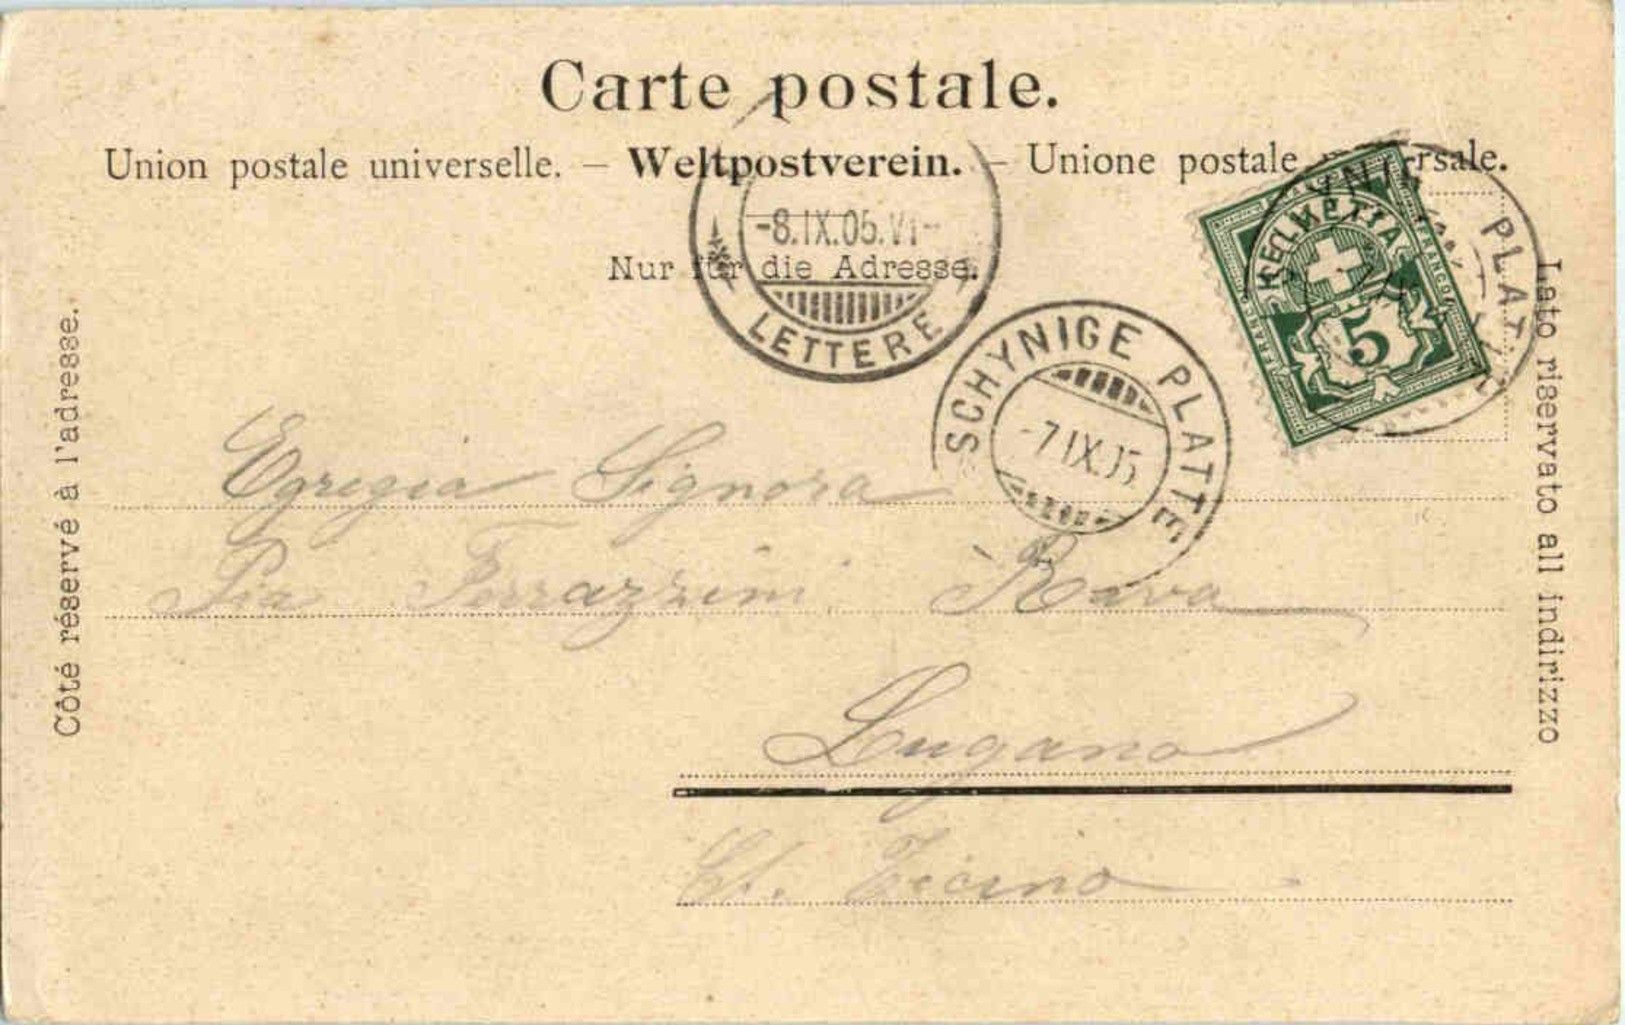 Carte postale.
Union postale universelle. – Weltpostverein. – Unione postale
Nur für die Adresse.
-8.IX.05.VI-
LETTERE
SCHYNIGE PLATTE
-7.IX.05
HELVETIA
FRANCO
FRANCO
5
PLATTE
Côté réservé à l'adresse.
Lato riservato all indirizzo
Egregia Signora
Pia Ferrazzini Rava
Lugano
Ct. Ticino